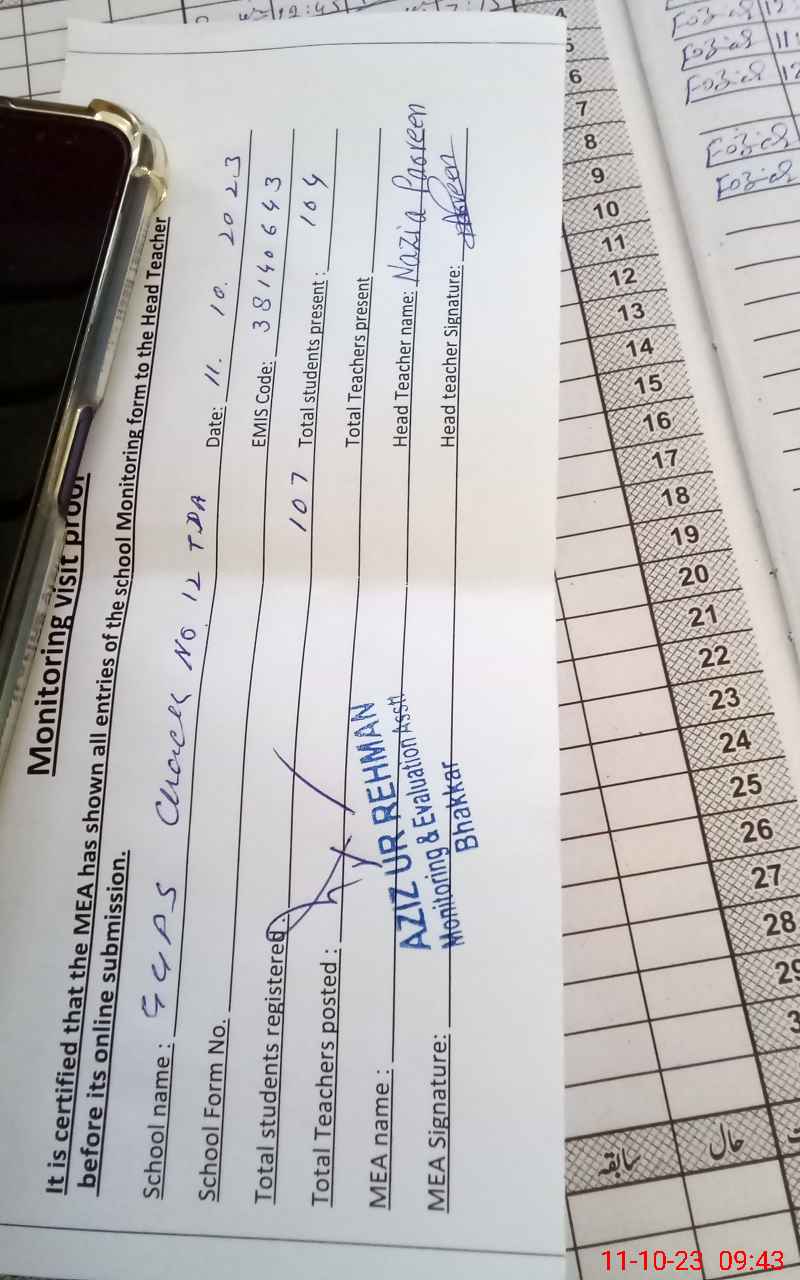 Monitoring visit proof
It is certified that the MEA has shown all entries of the school Monitoring form to the Head Teacher
before its online submission.
School name : GGPS Chack No 12 TDA Date: 11. 10. 2023
School Form No. EMIS Code: 38140643
Total students registered : 107 Total students present : 104
Total Teachers posted : Total Teachers present
MEA name : AZIZ UR REHMAN Head Teacher name: Nazia Parveen
Monitoring & Evaluation Asstt
MEA Signature: Bhakkar Head teacher Signature: Parveen
5
6
7
8
9
10
11
12
13
14
15
16
17
18
19
20
21
22
23
24
25
26
27
28
29
حال
سابقہ
11-10-23 09:43